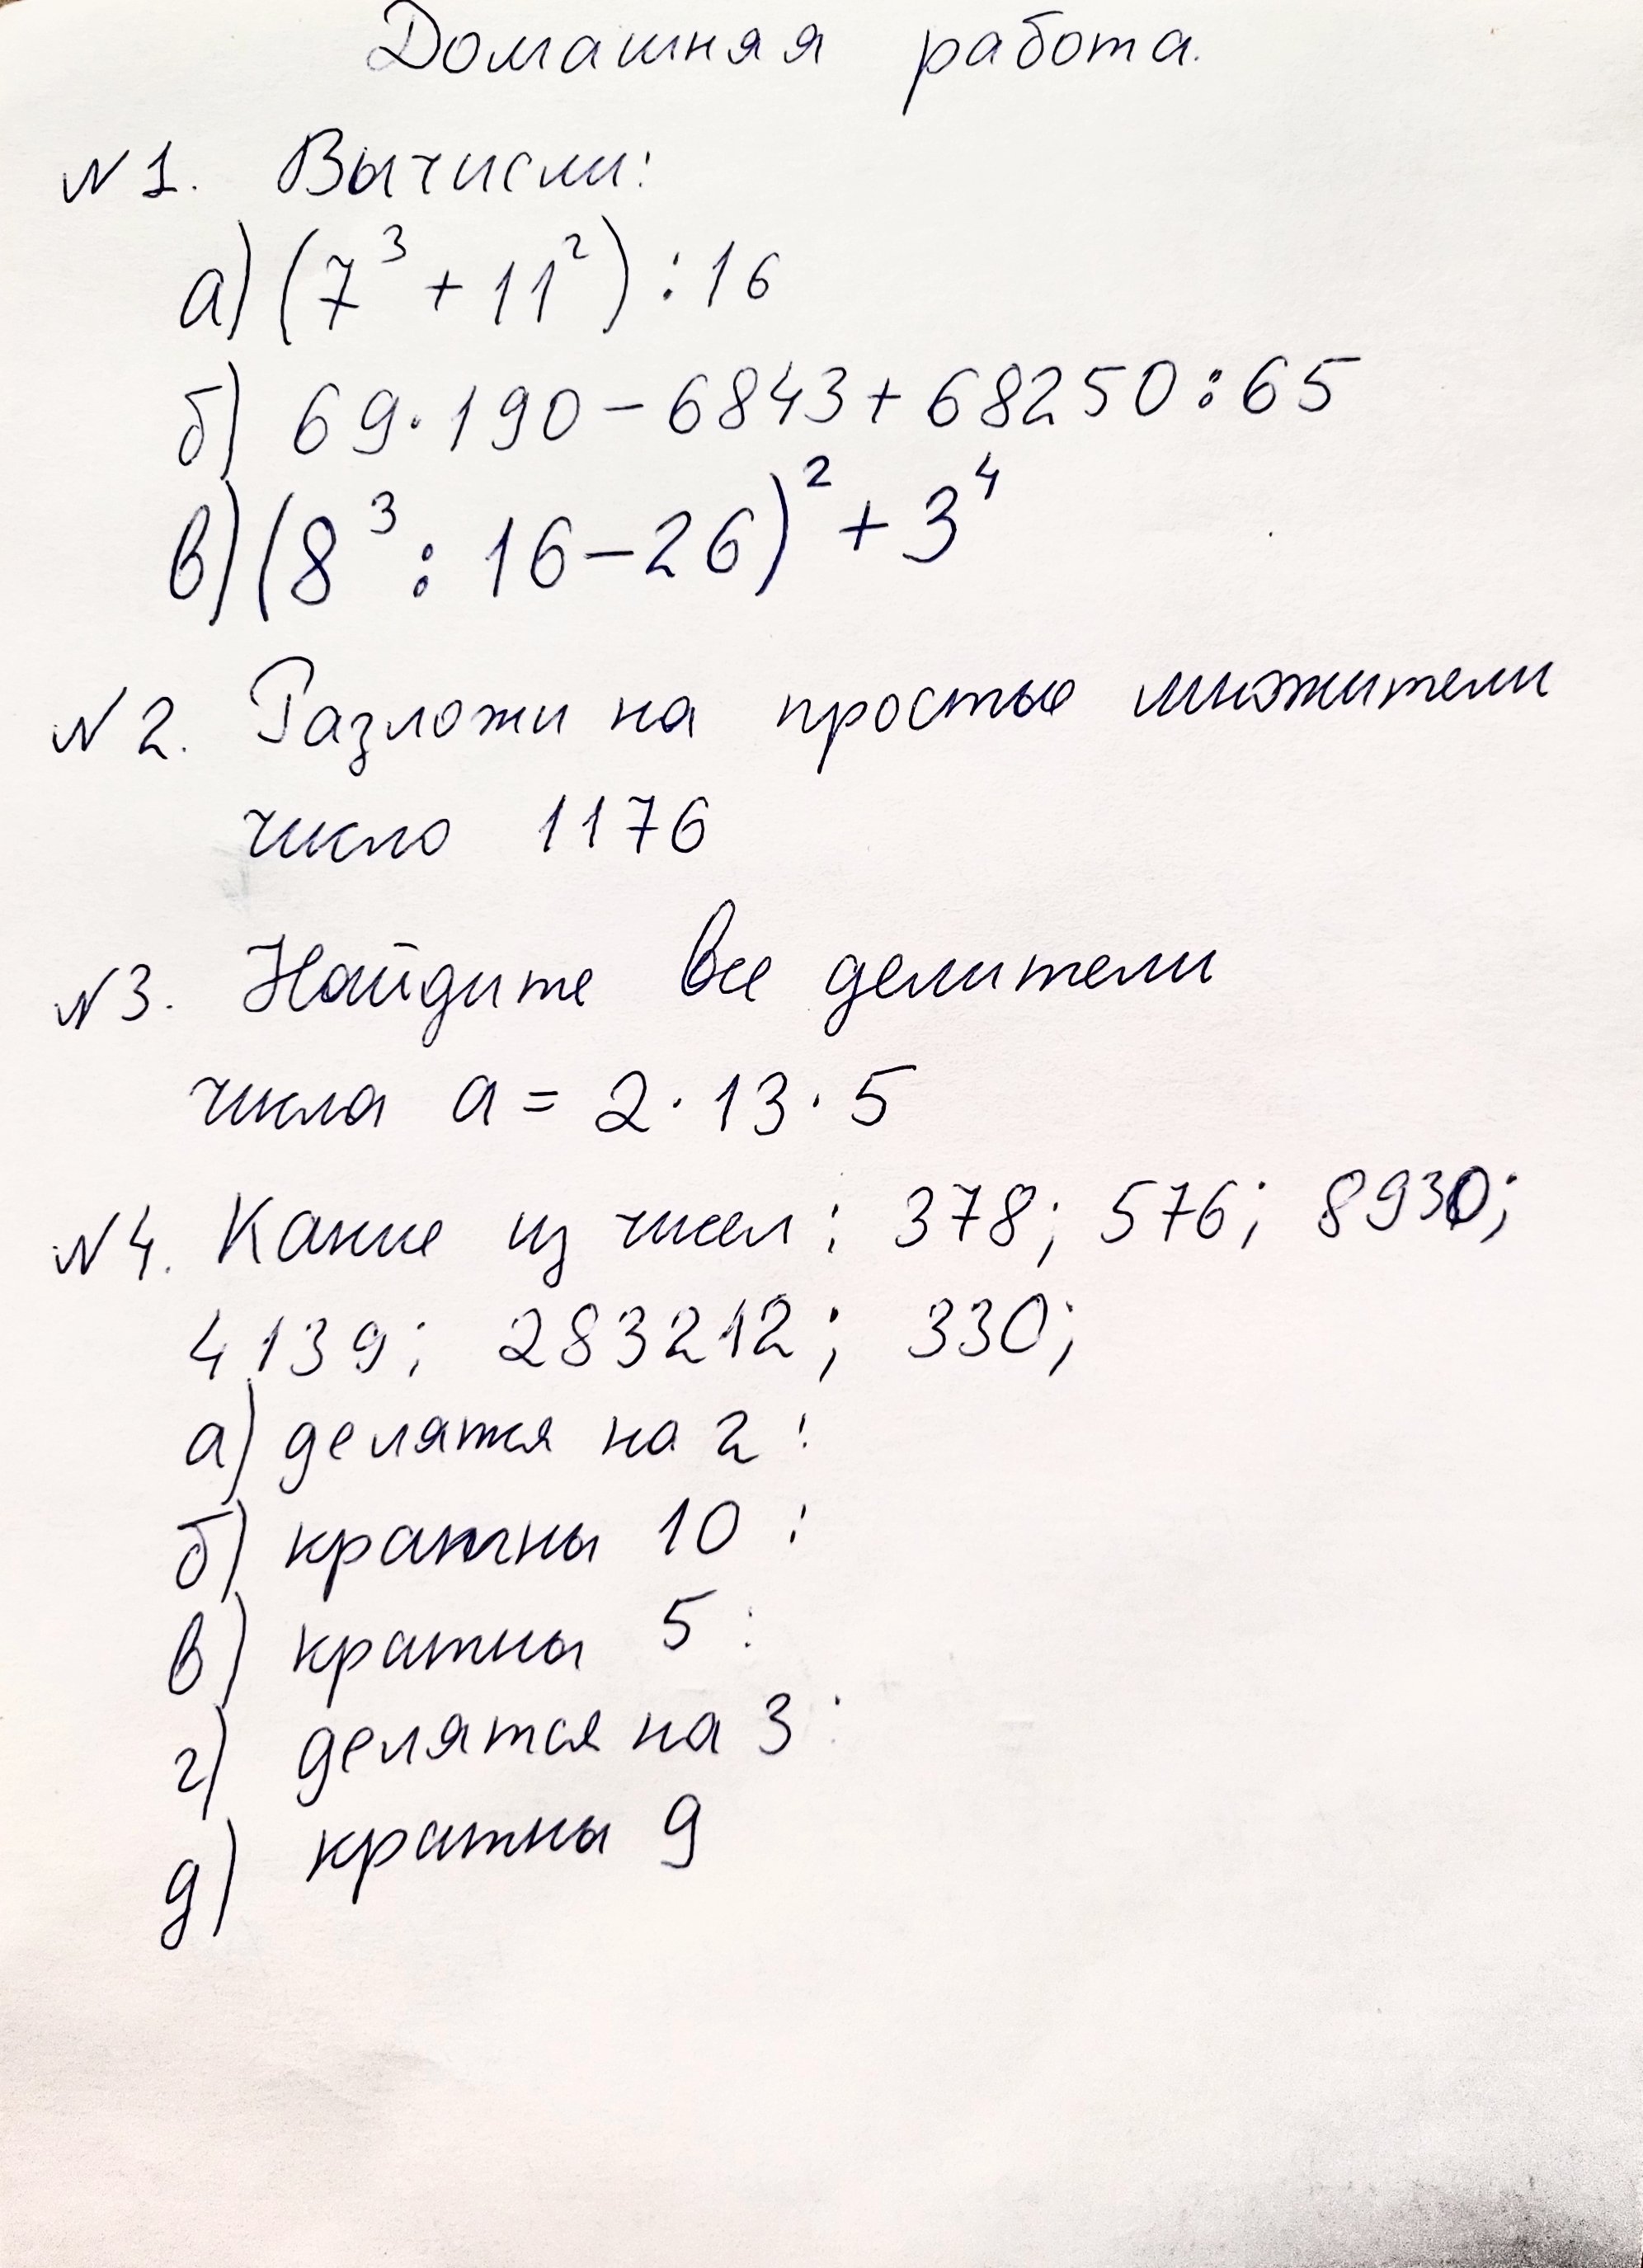 Домашняя работа.
№1. Вычисли:
а) (7³ + 11²) : 16
б) 69·190 – 6843 + 68250 : 65
в) (8³ : 16 – 26)² + 3⁴
№2. Разложи на простые множители
число 1176
№3. Найдите все делители
числа а = 2 · 13 · 5
№4. Какие из чисел: 378; 576; 8930;
4139; 283212; 330;
а) делятся на 2:
б) кратны 10:
в) кратны 5:
г) делятся на 3:
д) кратны 9